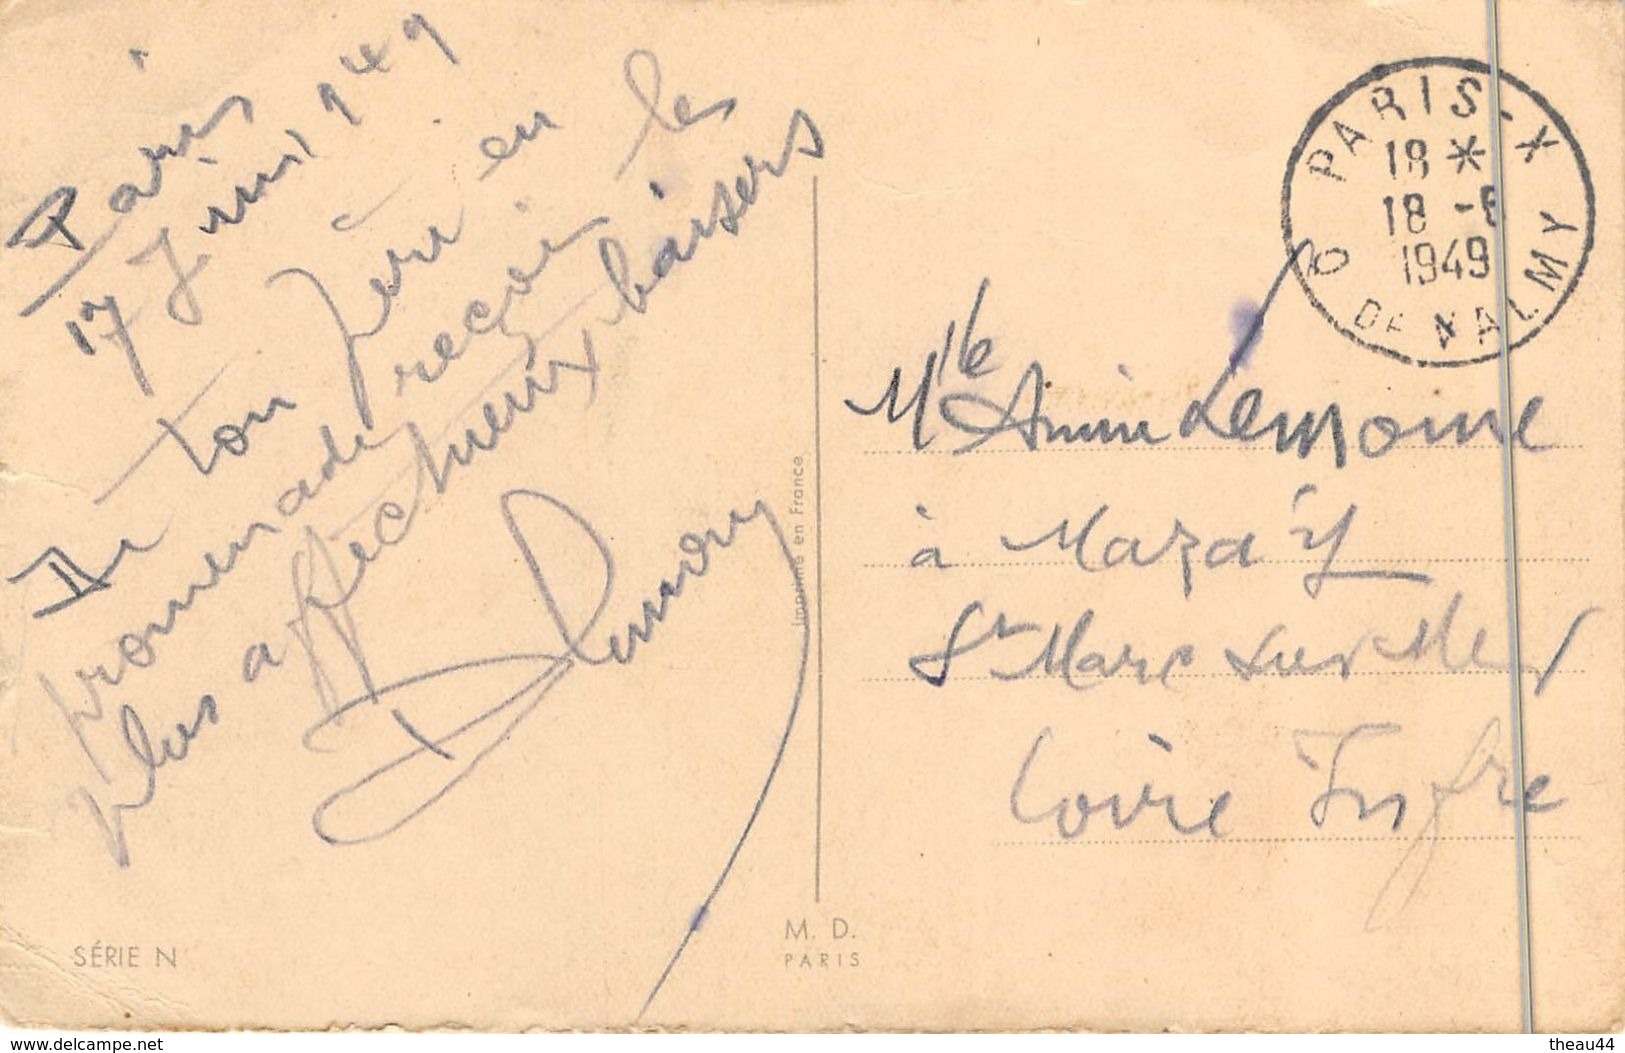 Paris
17 Juin 1949
De ton Père en
promenade reçois les
plus affectueux baisers
PARIS-X
18 *
18 -6
1949
Q DE VALMY
Mlle Lemoine
à Mazaÿ
St Marc sur Mer
Loire Infre
Imprimé en France
SÉRIE N
M. D.
PARIS
www.delcampe.net
theau44